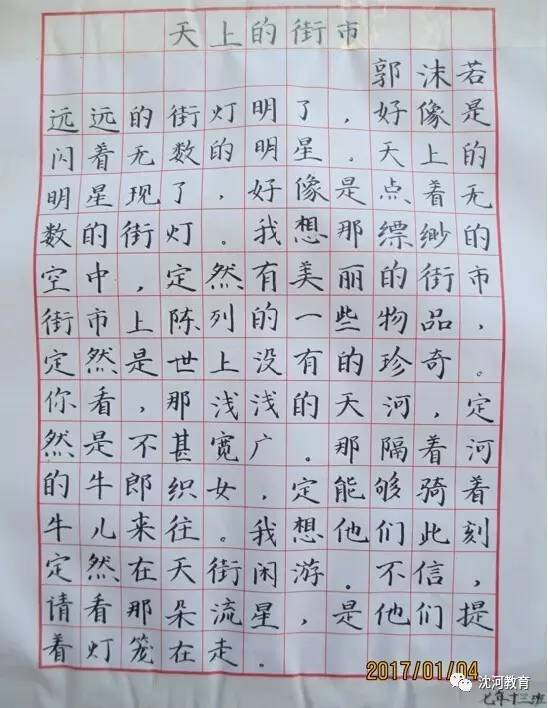 天上的街市
郭沫若
远远的街灯明了，好像是
闪着无数的明星。天上的
明星现了，好像是点着无
数的街灯。我想那缥缈的
空中，定然有美丽的街市
街市上陈列的一些物品，
定然是世上没有的珍奇。
你看，那浅浅的天河，定
然是不甚宽广。那隔着河
的牛郎织女，定能够骑着
牛儿来往。我想他们此刻
定然在天街闲游。不信，
请看那朵流星，是他们提
着灯笼在走。
2017/01/04
沈河教育
七年十三班